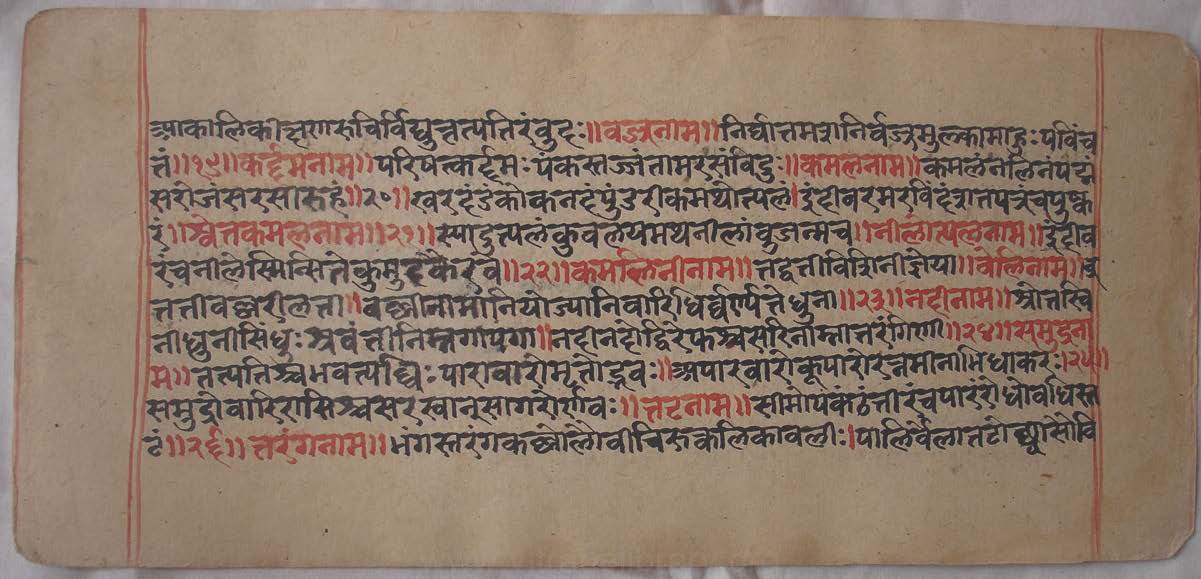 आकालिकीक्षणरुचिर्विद्युत्तत्पतिरंवुदः ॥वज्रनाम॥ निर्घातमशनिर्वज्रमुल्कामाहुः पविंच
तं॥१९॥ कर्द्दमनाम॥ परिषत्कर्द्दमः पंकस्तज्जंतामरसंविदुः ॥कमलनाम॥ कमलंनलिनंपद्मं
सरोजंसरसीरुहं॥२०॥ खरदंडंकोकनदंपुंडरीकमथोत्पलं। इंदीवरमरविंदंशतपत्रंचपुष्क
रं॥ श्वेतकमलनाम॥२१॥ स्यादुत्पलंकुवलयमथनीलांवुजन्मच॥ नीलोत्पलनाम॥ इंदीव
रंचनीलेस्मिन्सितेकुमुदकैरवे॥२२॥ कमलिनीनाम॥ तद्वतीविशिनीज्ञेया॥ वेलिनाम॥ व्र
ततीवल्लरीलता॥ वल्लीनामानियोज्यानिवारिधिर्वर्ण्यतेधुना॥२३॥ नदीनाम॥ श्रोतस्वि
नीधुनीसिंधुः श्रवंतीनिम्नगापगा॥ नदीनदोद्विरेफश्चसरिनाम्नीतरंगिणी॥२४॥ समुद्रना
म॥ तत्पतिश्चभवत्यब्धिः पारावारोमृतोद्भवः॥ अपारवारोकूपारोरत्नमीनाभिधाकरः।२५॥
समुद्रोवारिराशिश्चसरस्वान्सागरोर्णवः॥ तटनाम॥ सीमोपकंठंतीरंचपारंरोधोवधिस्त
टं॥२६॥ तरंगनाम॥ भंगस्तरंगकल्लोलौवीचिरुत्कलिकावली। पालिर्वेलातटोच्छ्वासोवि